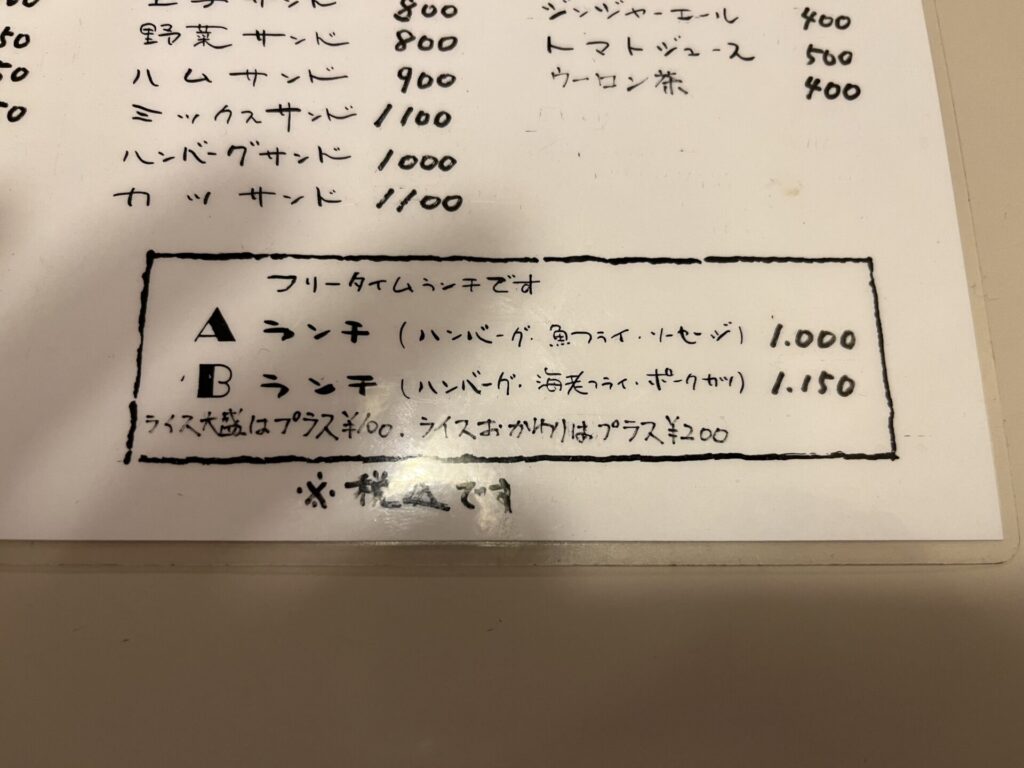 サンド 800
野菜サンド 800
ハムサンド 900
ミックスサンド 1100
ハンバーグサンド 1000
カツサンド 1100
ジンジャーエール 400
トマトジュース 500
ウーロン茶 400
フリータイムランチです
Aランチ (ハンバーグ・魚フライ・ソーセージ) 1.000
Bランチ (ハンバーグ・海老フライ・ポークカツ) 1.150
ライス大盛はプラス¥100. ライスおかわりはプラス¥200
※税込です